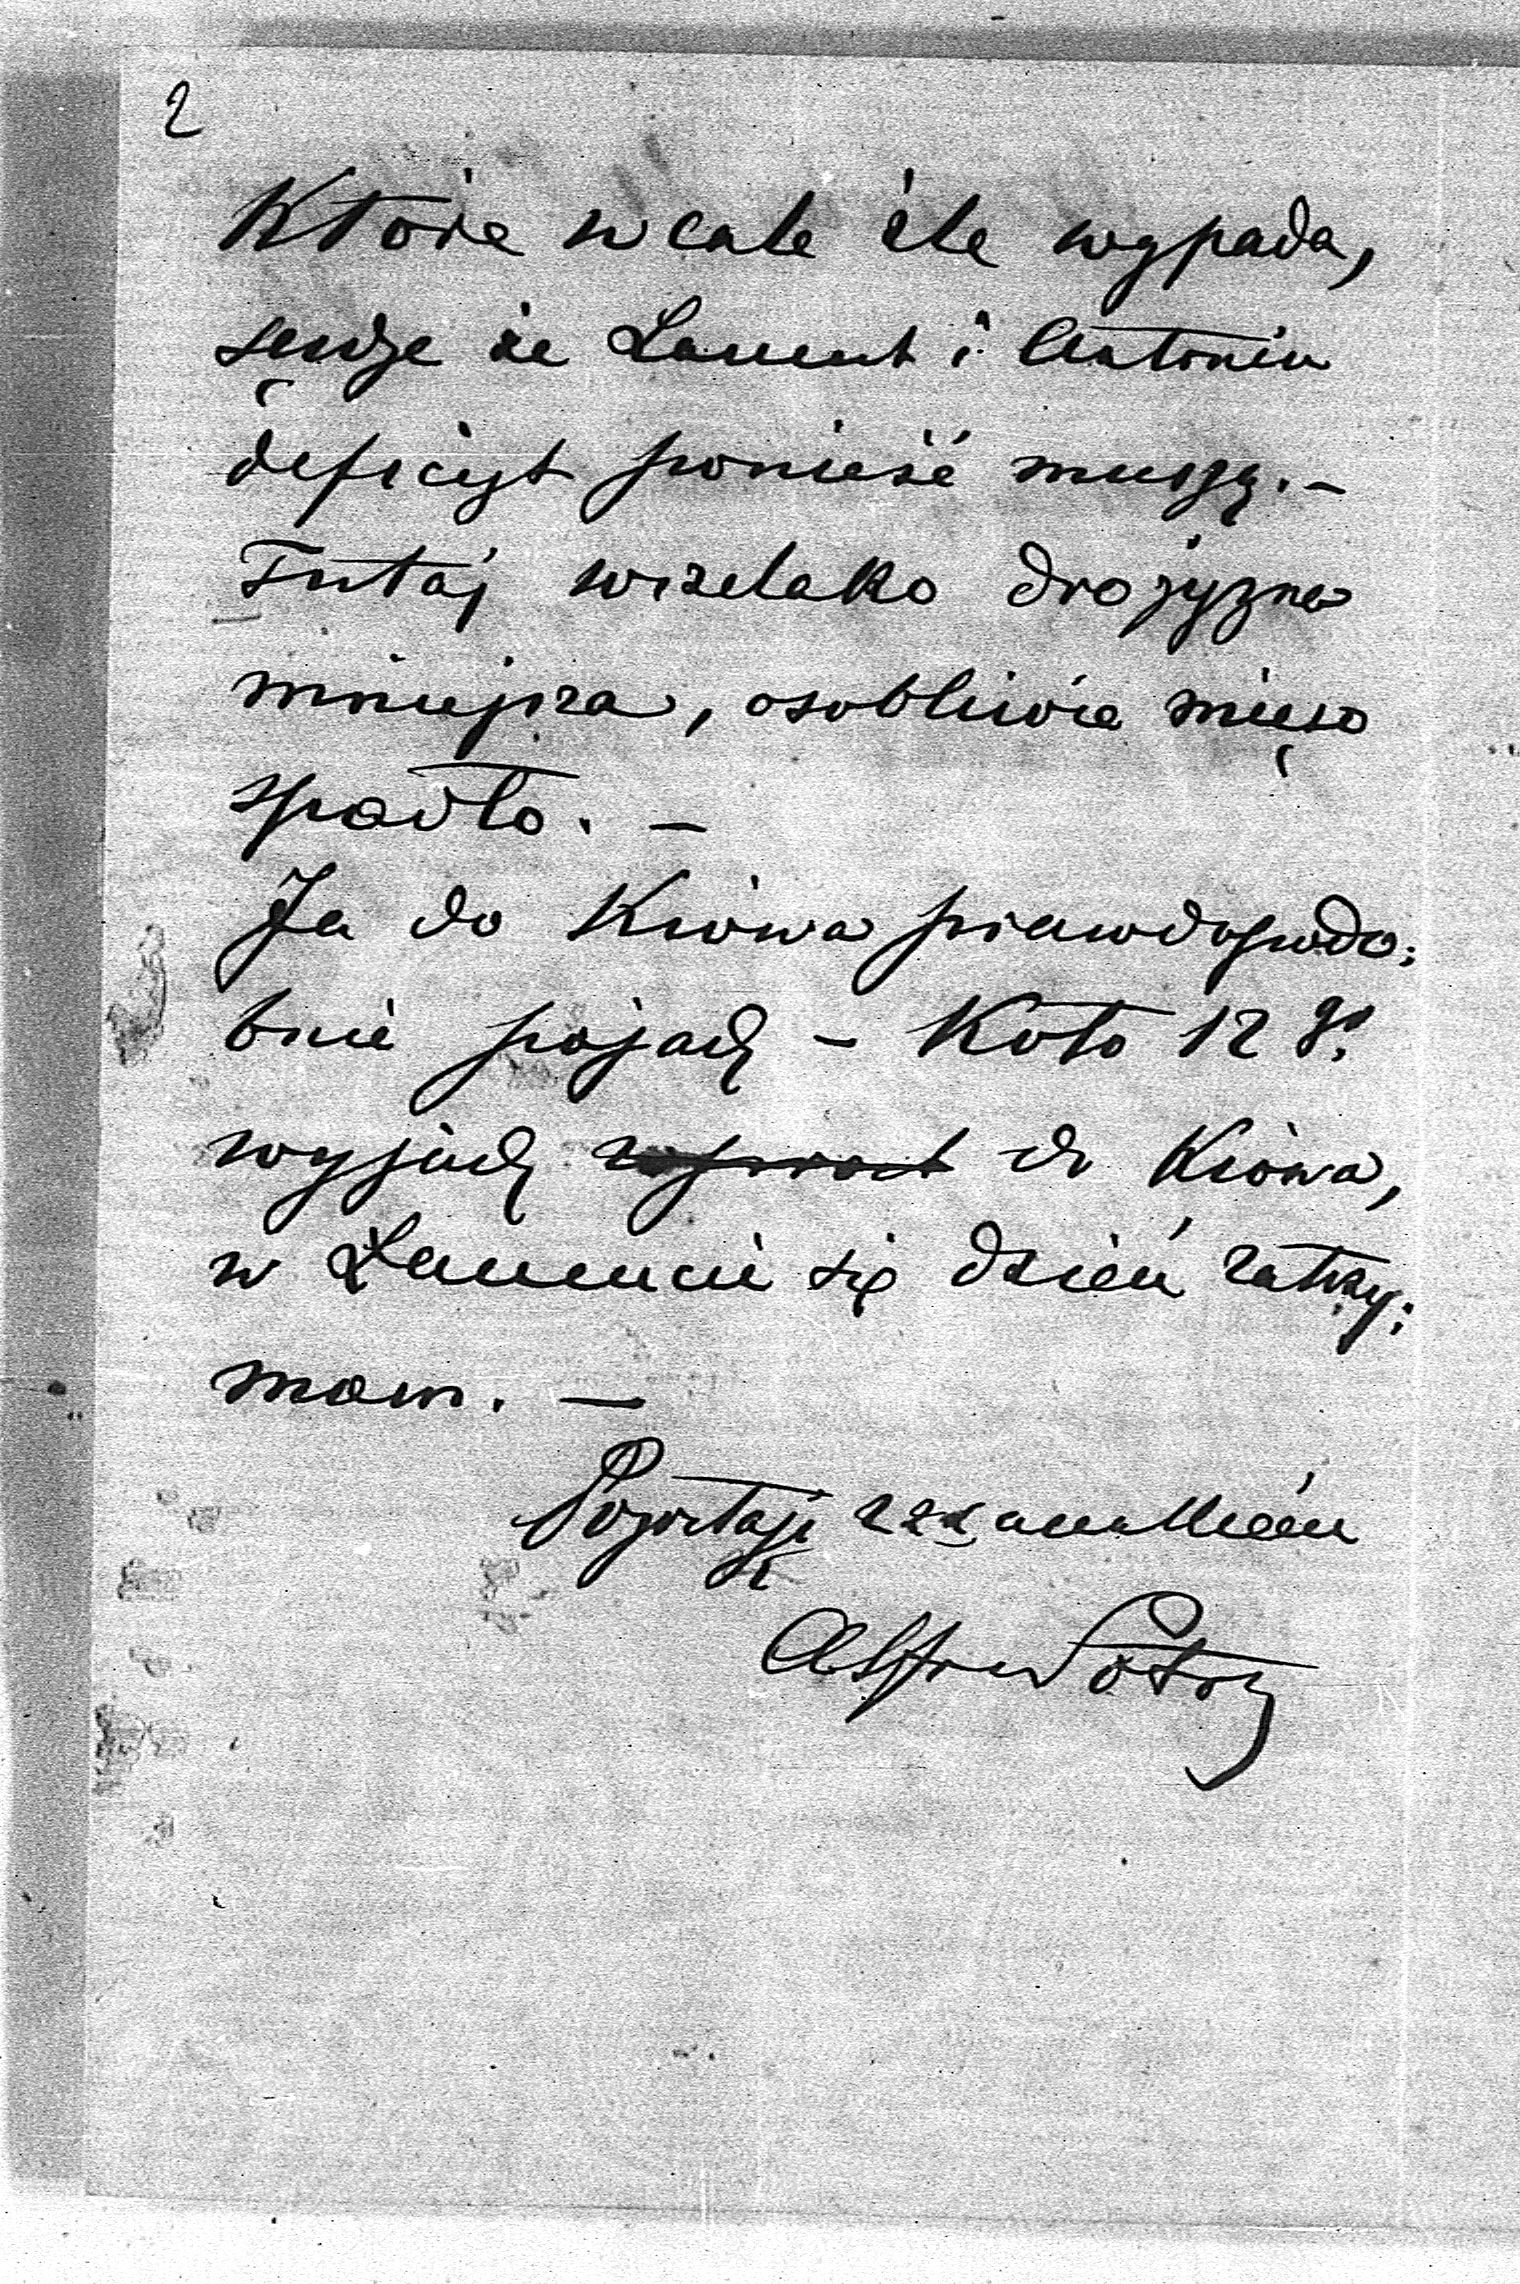 2
Które wcale źle wypada,
sądzę że Łańcut i Antonin
deficyt ponieść muszą. -
Tutaj wszelako drożyzna
mniejsza, osobliwie mięso
spadło. -
Ja do Kiowa prawdopodo:
bnie pojadę - Koło 12 go
wyjadę do Kiowa,
w Łańcucie się dzień zatrzy:
mam. -
Pozostaję z szacunkiem
Alfred Potocki